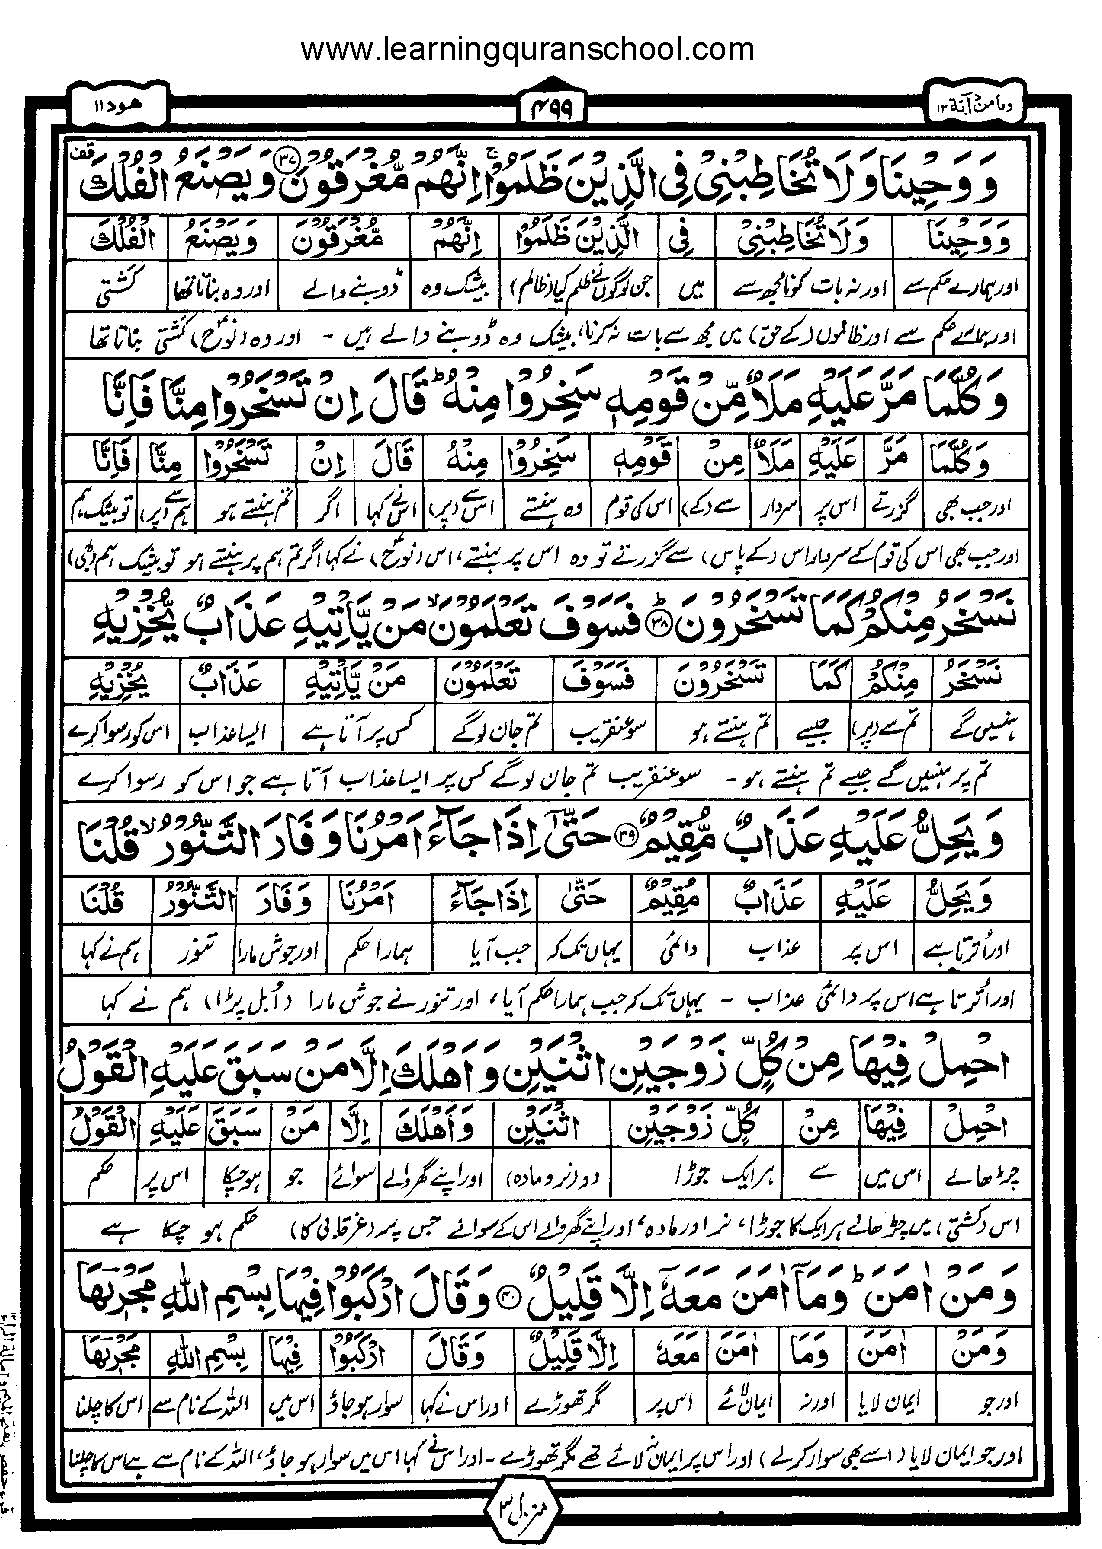 www.learningquranschool.com
ومامن دآبة ۱۲
۴۹۹
هود ۱۱
وَوَحْيِنَا وَلَا تُخَاطِبْنِيْ فِي الَّذِيْنَ ظَلَمُوْا ۚ اِنَّهُمْ مُّغْرَقُوْنَ ﴿۳۷﴾ وَيَصْنَعُ الْفُلْكَ ۟قف
وَوَحْيِنَا وَلَا تُخَاطِبْنِيْ فِي الَّذِيْنَ ظَلَمُوْا اِنَّهُمْ مُّغْرَقُوْنَ وَيَصْنَعُ الْفُلْكَ
اور ہمارے حکم سے اور نہ بات کرنا مجھ سے میں جن لوگوں نے ظلم کیا (ظالم) بیشک وہ ڈوبنے والے اور وہ بناتا تھا کشتی
اور ہمارے حکم سے اور ظالموں (کے حق) میں مجھ سے بات نہ کرنا، بیشک وہ ڈوبنے والے ہیں - اور وہ (نوحؑ) کشتی بناتا تھا
وَكُلَّمَا مَرَّ عَلَيْهِ مَلَاٌ مِّنْ قَوْمِهٖ سَخِرُوْا مِنْهُ ؕ قَالَ اِنْ تَسْخَرُوْا مِنَّا فَاِنَّا
وَكُلَّمَا مَرَّ عَلَيْهِ مَلَاٌ مِنْ قَوْمِهٖ سَخِرُوْا مِنْهُ قَالَ اِنْ تَسْخَرُوْا مِنَّا فَاِنَّا
اور جب بھی گزرتے اس پر سردار سے (کے) اس کی قوم وہ ہنستے اس سے (پر) اس نے کہا اگر تم ہنستے ہو ہم سے (پر) تو بیشک ہم
اور جب بھی اس کی قوم کے سردار اس (کے پاس) سے گزرتے تو وہ اس پر ہنستے، اس (نوحؑ) نے کہا اگر تم ہم پر ہنستے ہو تو بیشک ہم (بھی)
نَسْخَرُ مِنْكُمْ كَمَا تَسْخَرُوْنَ ؕ﴿۳۸﴾ فَسَوْفَ تَعْلَمُوْنَ ۙ مَنْ يَّاْتِيْهِ عَذَابٌ يُّخْزِيْهِ
نَسْخَرُ مِنْكُمْ كَمَا تَسْخَرُوْنَ فَسَوْفَ تَعْلَمُوْنَ مَنْ يَّاْتِيْهِ عَذَابٌ يُّخْزِيْهِ
ہنسیں گے تم سے (پر) جیسے تم ہنستے ہو سو عنقریب تم جان لوگے کس پر آتا ہے ایسا عذاب اس کو رسوا کرے
تم پر ہنسیں گے جیسے تم ہنستے ہو - سو عنقریب تم جان لوگے کس پر ایسا عذاب آتا ہے جو اس کو رسوا کرے
وَيَحِلُّ عَلَيْهِ عَذَابٌ مُّقِيْمٌ ﴿۳۹﴾ حَتّٰىٓ اِذَا جَآءَ اَمْرُنَا وَفَارَ التَّنُّوْرُ ۙ قُلْنَا
وَيَحِلُّ عَلَيْهِ عَذَابٌ مُّقِيْمٌ حَتّٰى اِذَا جَآءَ اَمْرُنَا وَفَارَ التَّنُّوْرُ قُلْنَا
اور اُترتا ہے اس پر عذاب دائمی یہاں تک کہ جب آیا ہمارا حکم اور جوش مارا تنور ہم نے کہا
اور اُترتا ہے اس پر دائمی عذاب - یہاں تک کہ جب ہمارا حکم آیا، اور تنور نے جوش مارا (اُبل پڑا) ہم نے کہا
احْمِلْ فِيْهَا مِنْ كُلٍّ زَوْجَيْنِ اثْنَيْنِ وَاَهْلَكَ اِلَّا مَنْ سَبَقَ عَلَيْهِ الْقَوْلُ
احْمِلْ فِيْهَا مِنْ كُلٍّ زَوْجَيْنِ اثْنَيْنِ وَاَهْلَكَ اِلَّا مَنْ سَبَقَ عَلَيْهِ الْقَوْلُ
چڑھالے اس میں سے ہر ایک جوڑا دو (نر و مادہ) اور اپنے گھر والے سوائے جو ہو چکا اس پر حکم
اس (کشتی) میں چڑھالے ہر ایک کا جوڑا، نر اور مادہ، اور اپنے گھر والے اس کے سوائے جس پر (غرقابی کا) حکم ہو چکا ہے
وَمَنْ اٰمَنَ ؕ وَمَآ اٰمَنَ مَعَهٗٓ اِلَّا قَلِيْلٌ ﴿۴۰﴾ وَقَالَ ارْكَبُوْا فِيْهَا بِسْمِ اللّٰهِ مَجْرٖىهَا
وَمَنْ اٰمَنَ وَمَا اٰمَنَ مَعَهٗ اِلَّا قَلِيْلٌ وَقَالَ ارْكَبُوْا فِيْهَا بِسْمِ اللّٰهِ مَجْرٖىهَا
اور جو ایمان لایا اور نہ ایمان لائے اس پر مگر تھوڑے اور اس نے کہا سوار ہو جاؤ اس میں اللہ کے نام سے اس کا چلنا
اور جو ایمان لایا (اسے بھی سوار کرلے) اور اس پر ایمان نہ لائے تھے مگر تھوڑے - اور اس نے کہا اس میں سوار ہو جاؤ، اللہ کے نام سے ہے اس کا چلنا
منزل ۳